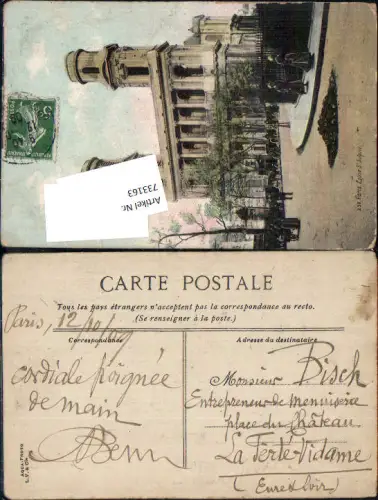 Artikel Nr.
733163
CARTE POSTALE
Tous les pays étrangers n'acceptent pas la correspondance au recto.
(Se renseigner à la poste.)
Correspondance
Adresse du destinataire
Paris, 12/10/07
cordiale poignée
de main
Monsieur Bisch
Entrepreneur de menuiserie
place du Château
La Ferté-Vidame
(Eure et Loir)